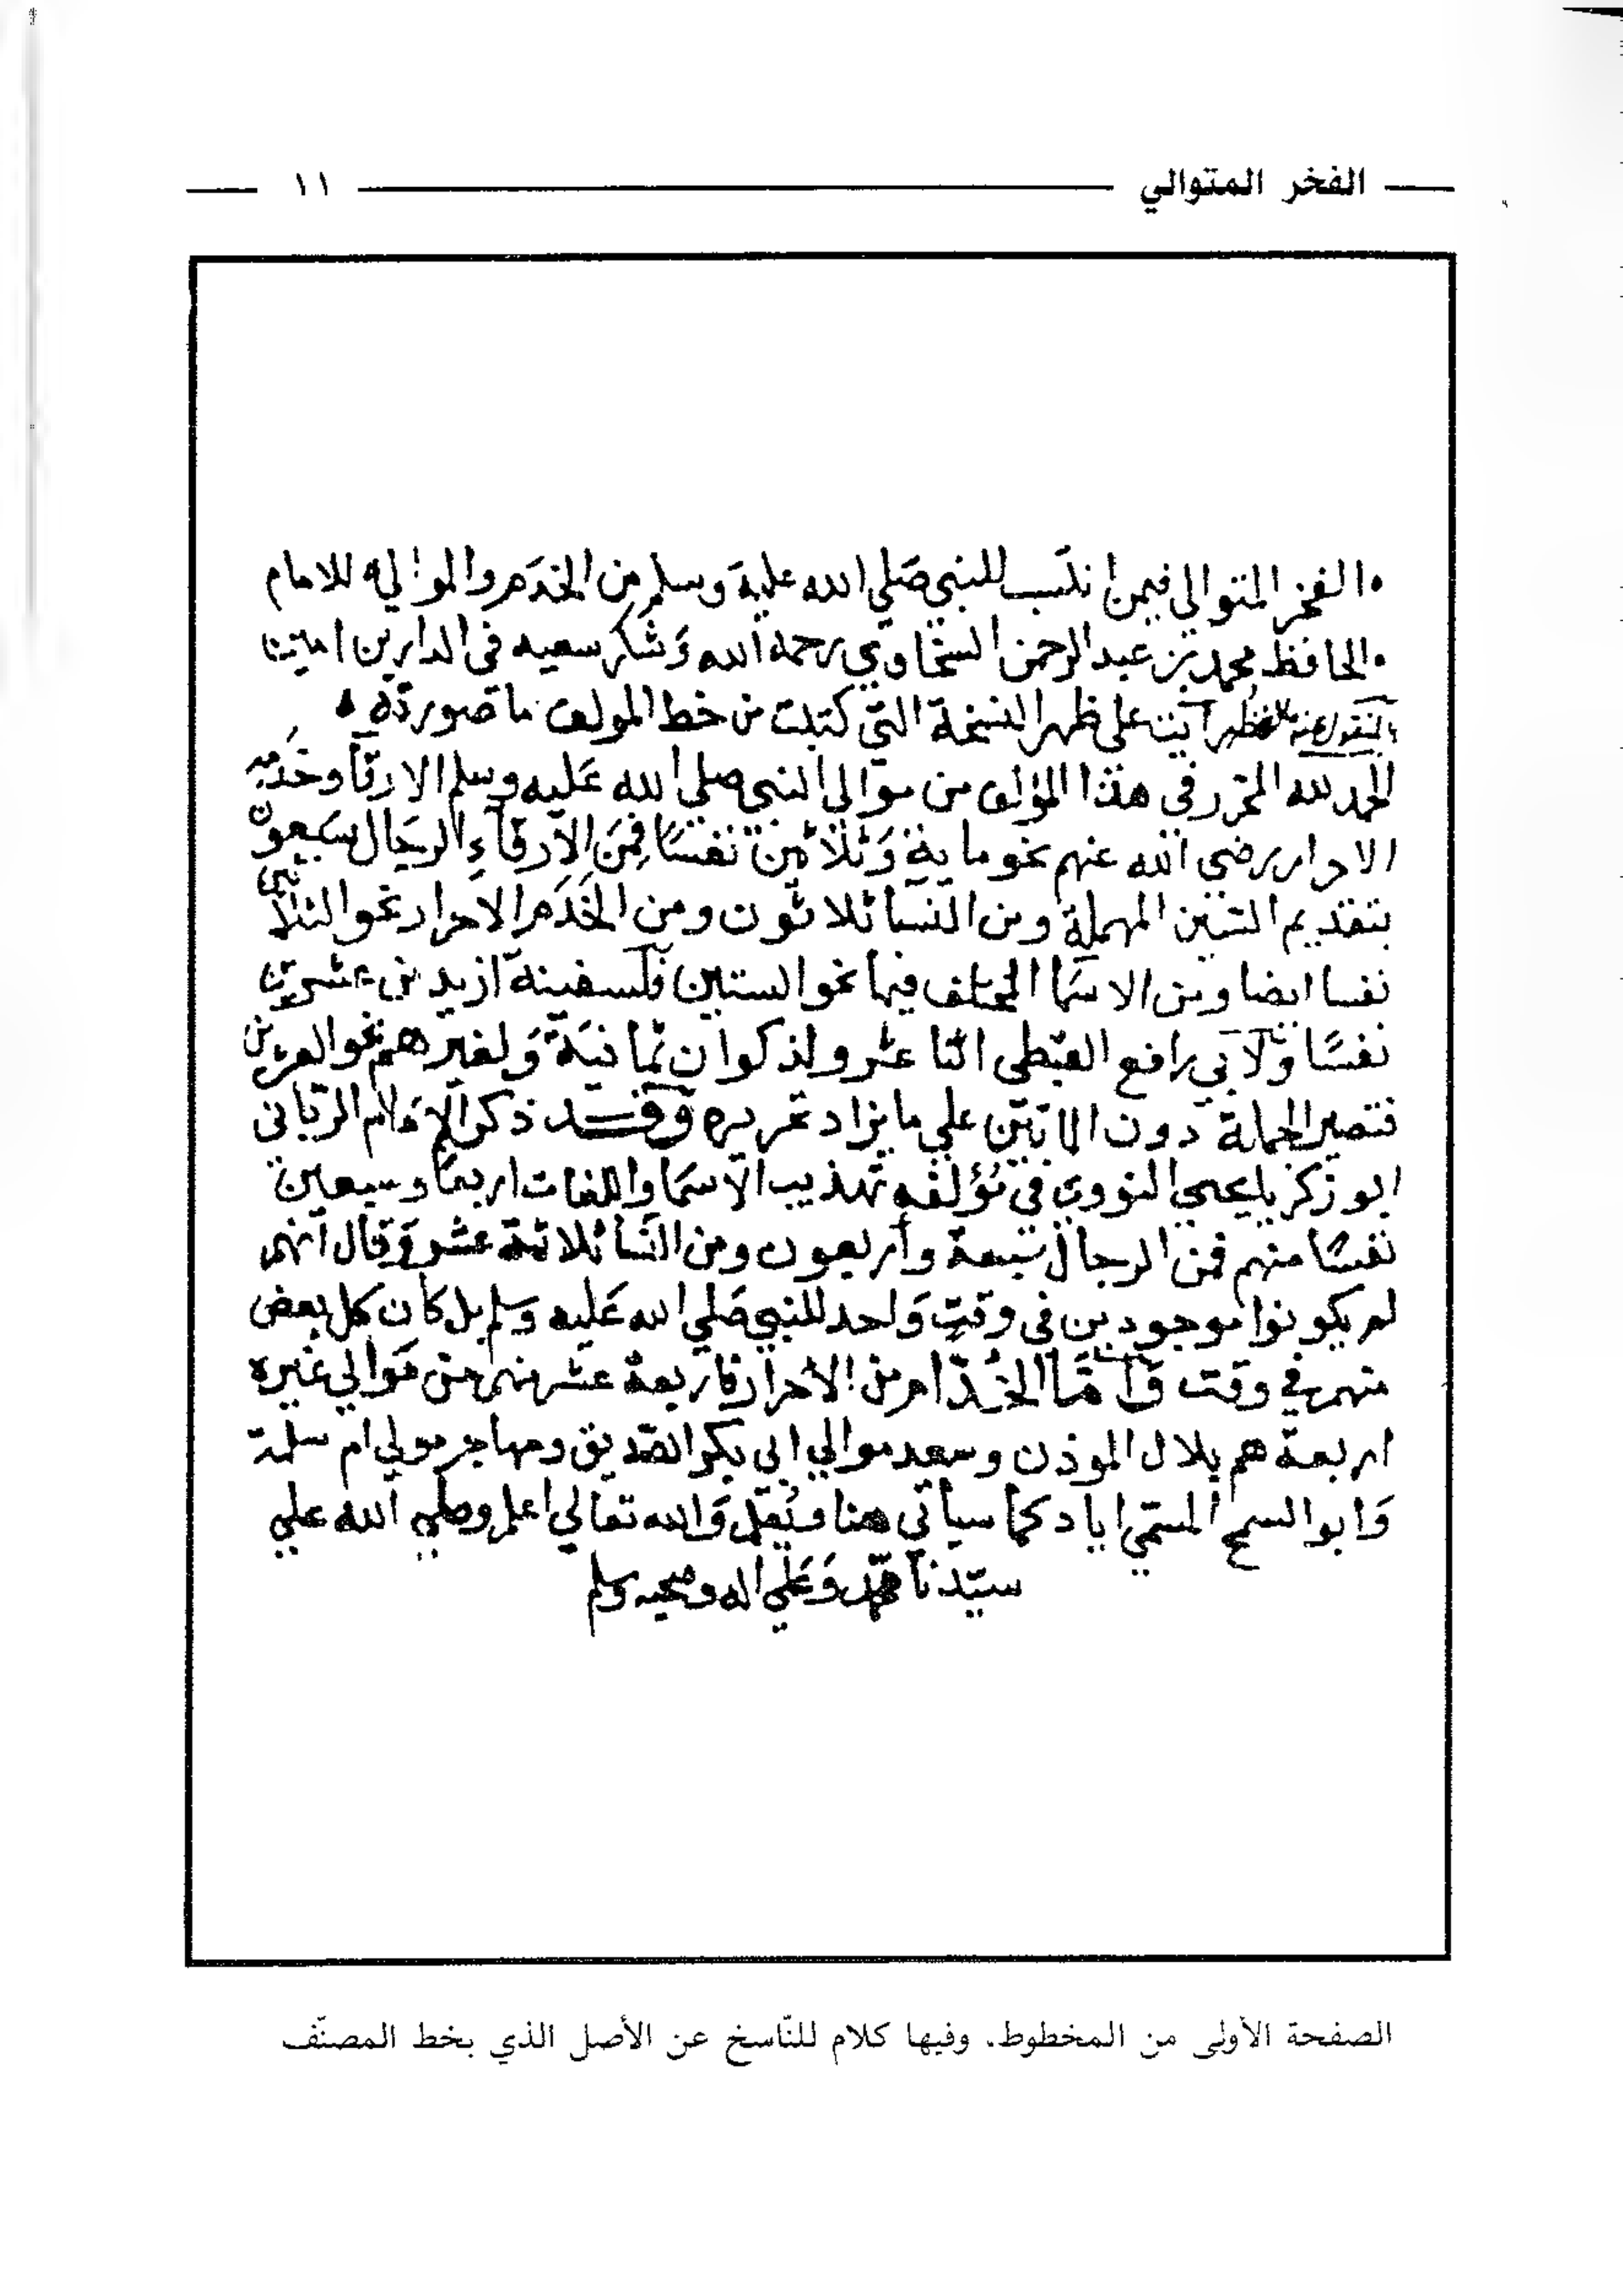 الفخر المتوالي ١١
الفخر المتوالى فيمن انتسب للنبي صَلي الله عليه وَسلم من الخدَم والموالي للامام
الحافظ محمد بن عبد الرحمن السخاوي رحمه الله وَشكر سعيه فى الدارين امين
رايت على ظهر النسخة التي كتبت من خط المولف ما صورته
الحمد لله المتحرر فى هذا المؤلف من موالي النبي صلي الله عَليه وسلم الارقآ وخدَمه
الاحرار رضي الله عنهم نحو ماية وَثلاثين نفسًا فمِنَ الأرقآءِ الرجَال سَبعون
بتقديم السّين المهملة ومن النسآ ثلاثون ومن الخَدَم الاحرار نحو الثلاثين
نفسا ايضا ومن الاسمَا المختلف فيها نحو الستين فلسفينة ازيد من عشرين
نفسًا وَلابي رافع القبطي اثنا عشر ولذكوان ثمانيَة وَلغيرهم نحو العشرين
فتصير الجملة دون الماتين علي ما يزاد تحريره وَقد ذكر الإمَام الربّانى
ابو زكريا يحيى النووي في مُؤلفه تهذيب الآسمَا واللغات اربعًا وسبعين
نفسًا منهم فمن الرجال سَبعة وأربعون ومن النسَا ثلاثة عشر وَقال انهم
لم يكونوا موجودين في وقتٍ وَاحد للنبي صَلي الله عَليه وسلم بل كان كل بعض
منهم في وقت وَأمَّا الخُدّام من الاحرار فاربعة عشر منهم من مَوالي غيره
اربعة هم بلال الموذن وسعد موالي ابي بكر الصّديق ومهاجر مولي ام سلمة
وَابو السمح المسمّي اياد كمَا سيأتي هنا وَالله تعالي اعلم وصلي الله علي
سيّدنا محمّد وَعَلي اله وصحبه وسلم
الصفحة الأولى من المخطوط. وفيها كلام للنّاسخ عن الأصل الذي بخط المصنّف